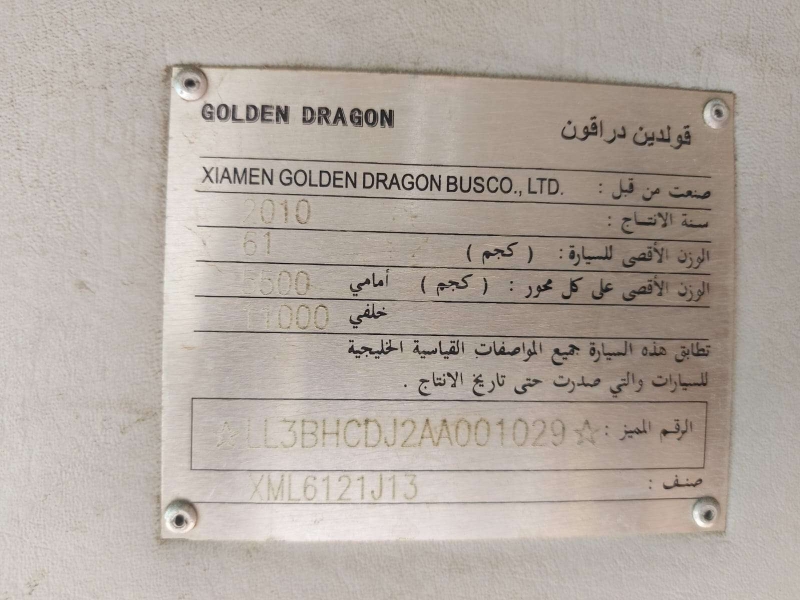 GOLDEN DRAGON قولدين دراقون
صنعت من قبل : XIAMEN GOLDEN DRAGON BUSCO., LTD.
سنة الانتاج : 2010
الوزن الأقصى للسيارة : ( كجم ) 61
الوزن الأقصى على كل محور : ( كجم ) أمامي 500
خلفي 11000
تطابق هذه السيارة جميع المواصفات القياسية الخليجية
للسيارات والتي صدرت حتى تاريخ الانتاج .
الرقم المميز : ☆LL3BHCDJ2AA001029☆
صنف : XML6121J13